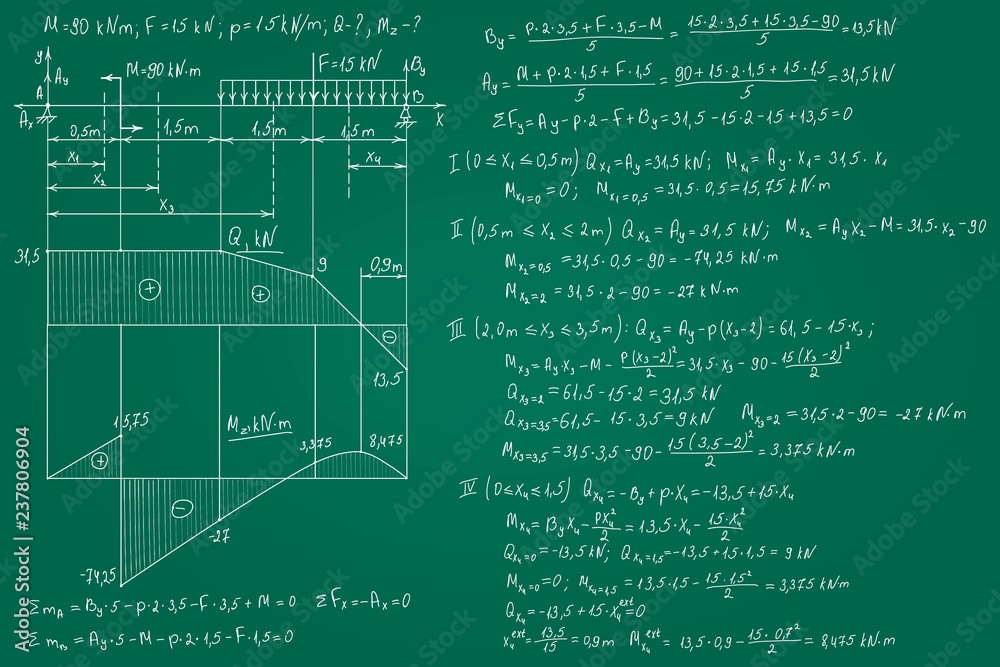 M=90 kNm; F=15 kN; p=15 kN/m; Q-?, Mz-?
y
Ay
M=90 kN·m
F=15 kN
By
A
B
Ax
x
0,5m
1,5m
1,5m
1,5m
x₁
x₂
x₃
x₄
Q, kN
31,5
9
0,9m
+
+
-
13,5
15,75
Mz, kN·m
3,375
8,475
+
-
-27
-74,25
Σm_A = By·5-p·2·3,5-F·3,5+M=0 ΣFx=-Ax=0
Σm_B = Ay·5-M-p·2·1,5-F·1,5=0
By = (p·2·3,5+F·3,5-M)/5 = (15·2·3,5+15·3,5-90)/5 = 13,5 kN
Ay = (M+p·2·1,5+F·1,5)/5 = (90+15·2·1,5+15·1,5)/5 = 31,5 kN
ΣFy=Ay-p·2-F+By=31,5-15·2-15+13,5=0
I (0≤x₁≤0,5m) Qx₁=Ay=31,5 kN; Mx₁=Ay·x₁=31,5·x₁
Mx₁=0=0; Mx₁=0,5=31,5·0,5=15,75 kN·m
II (0,5m≤x₂≤2m) Qx₂=Ay=31,5 kN; Mx₂=Ayx₂-M=31,5·x₂-90
Mx₂=0,5=31,5·0,5-90=-74,25 kN·m
Mx₂=2=31,5·2-90=-27 kN·m
III (2,0m≤x₃≤3,5m): Qx₃=Ay-p(x₃-2)=61,5-15·x₃;
Mx₃=Ay·x₃-M-p(x₃-2)²/2=31,5·x₃-90-15(x₃-2)²/2
Qx₃=2=61,5-15·2=31,5 kN
Qx₃=3,5=61,5-15·3,5=9 kN Mx₃=2=31,5·2-90=-27 kN·m
Mx₃=3,5=31,5·3,5-90-15(3,5-2)²/2=3,375 kN·m
IV (0≤x₄≤1,5) Qx₄=-By+p·x₄=-13,5+15·x₄
Mx₄=Byx₄-px₄²/2=13,5·x₄-15·x₄²/2
Qx₄=0=-13,5 kN; Qx₄=1,5=-13,5+15·1,5=9 kN
Mx₄=0=0; Mx₄=1,5=13,5·1,5-15·1,5²/2=3,375 kNm
Qx₄=-13,5+15·x₄ᵉˣᵗ=0
x₄ᵉˣᵗ=13,5/15=0,9m Mx₄ᵉˣᵗ=13,5·0,9-15·0,7²/2=8,475 kN·m
Adobe Stock | #237806904